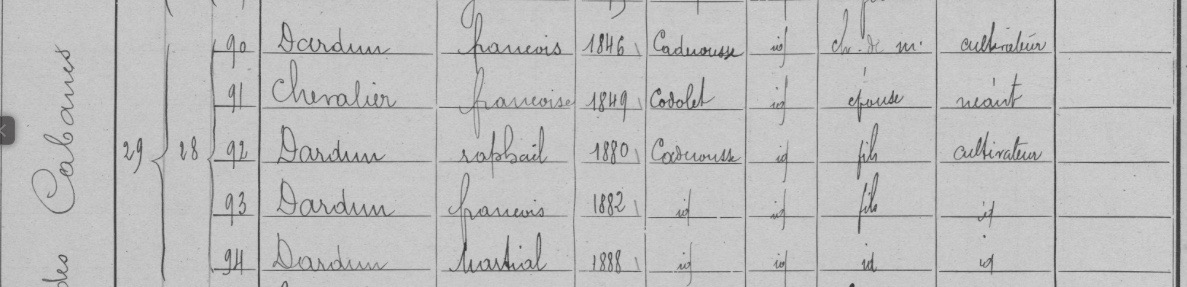 des Cabanes
29 28 90 Dardun francois 1846 Caderousse id ch. de m. cultivateur
91 Chevalier francoise 1849 Codolet id épouse néant
92 Dardun raphaël 1880 Caderousse id fils cultivateur
93 Dardun francois 1882 id id fils id
94 Dardun Martial 1888 id id id id